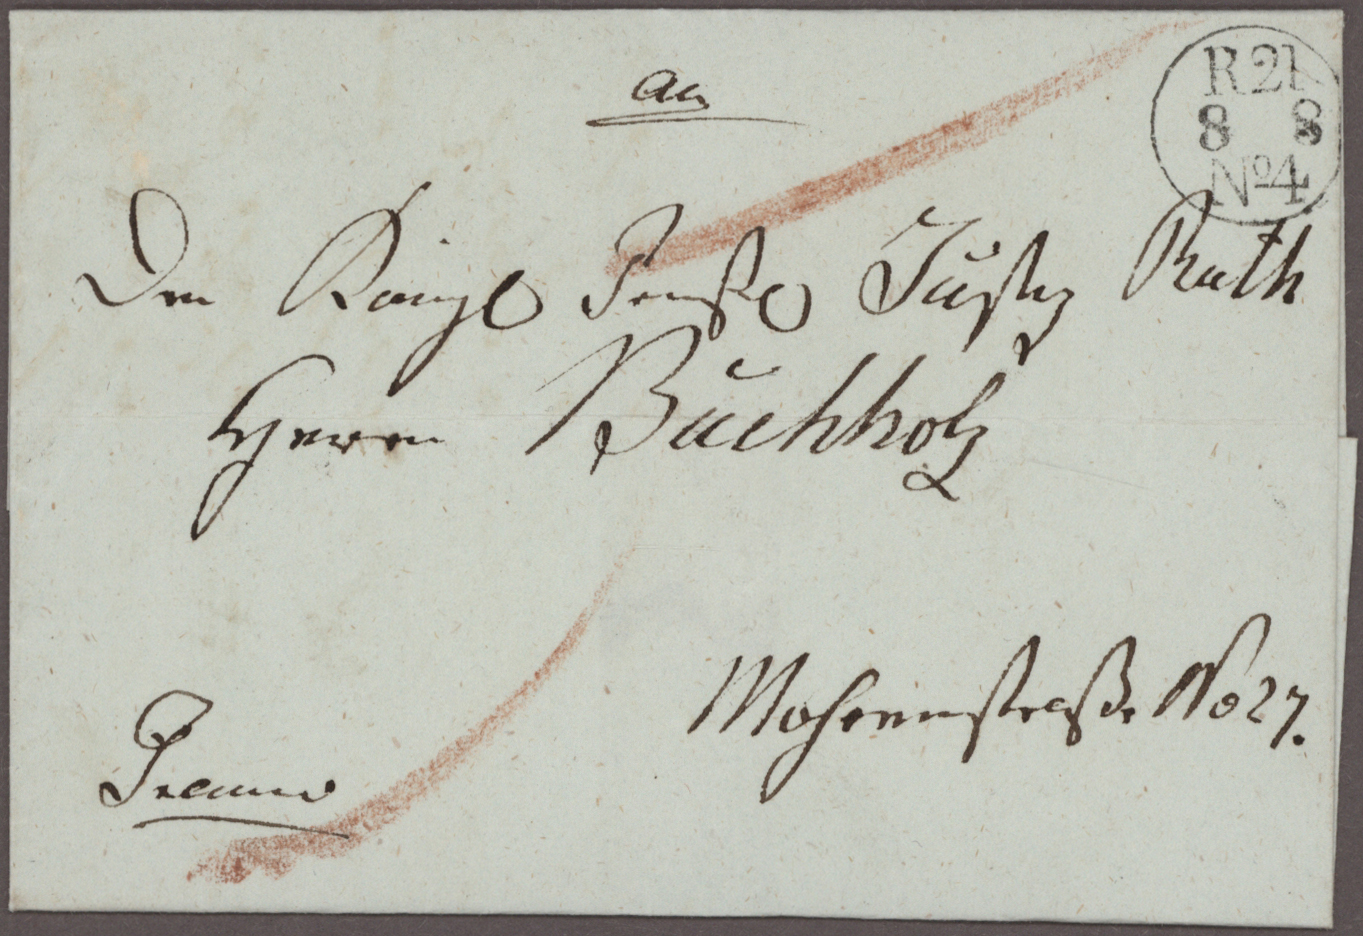 R 21
8 8
No 4
An
Den Königl Preuß Justiz Rath
Herrn Buchholz
Mohrenstraße No 27.
Franco